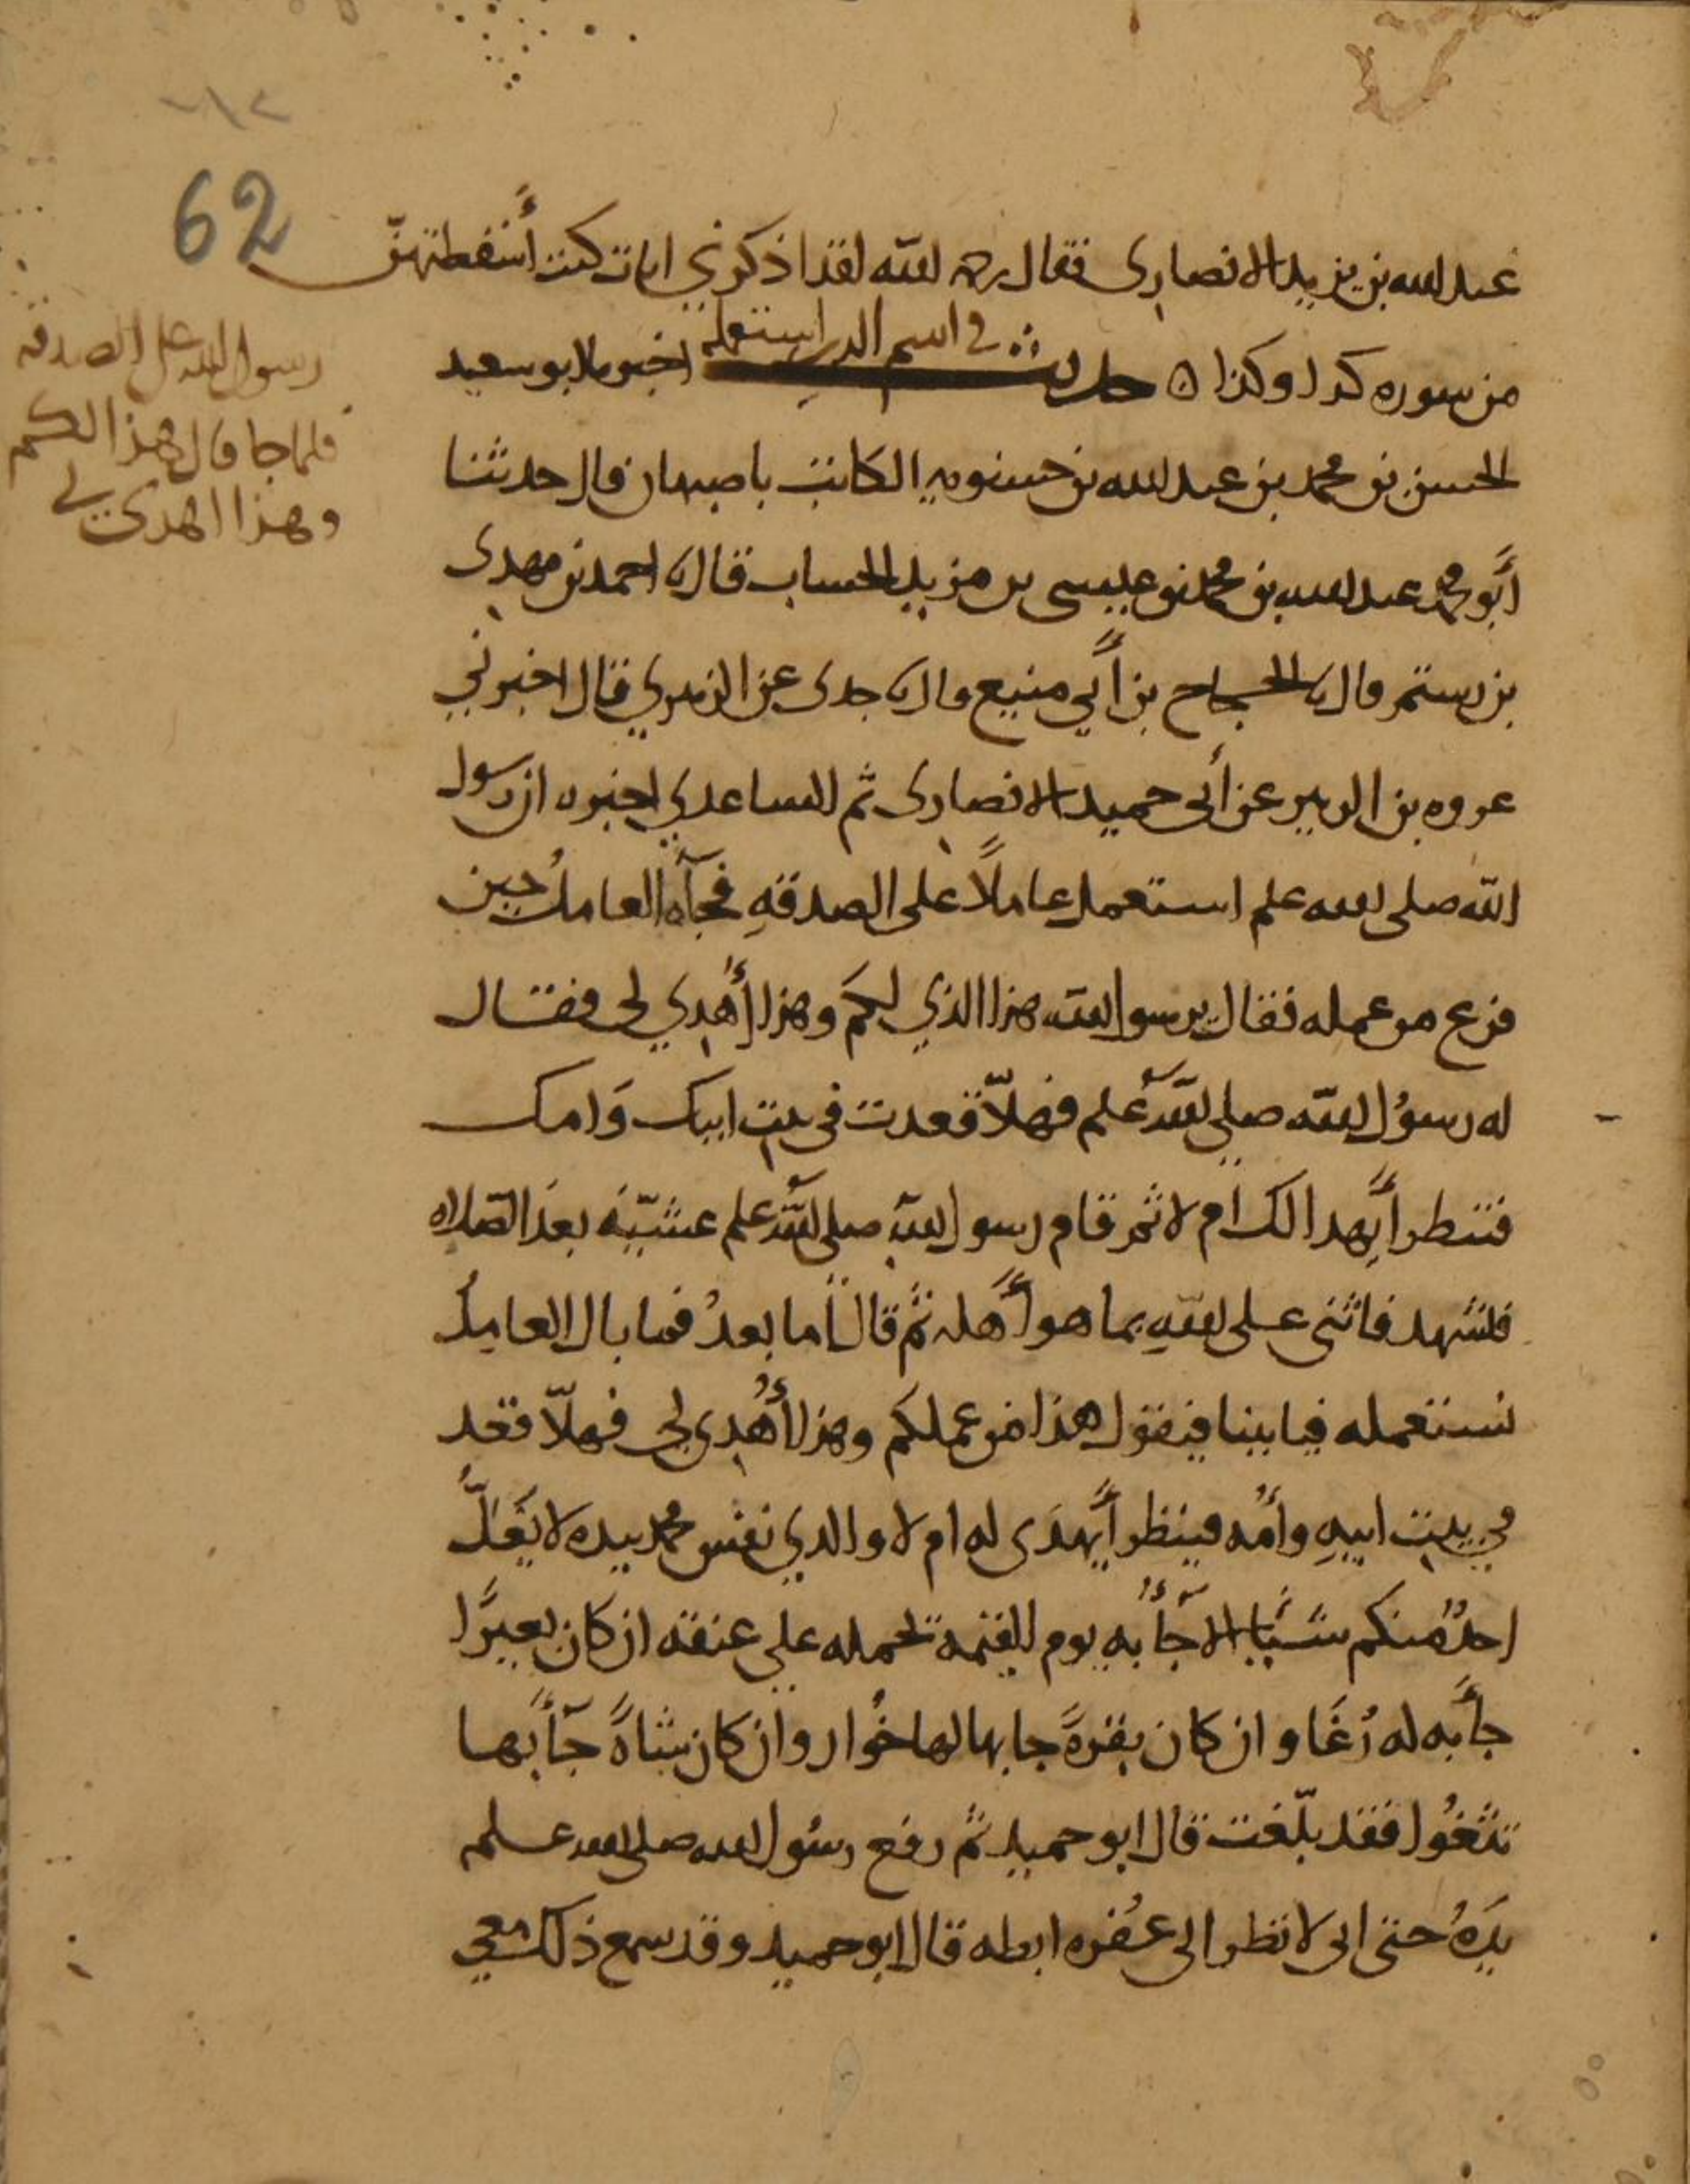 62
عبد الله بن يزيد الانصارى فقال رحمه الله لقد اذكرني ايات كنت أُسقطتهنّ
من سوره كدا وكذا ه حديث في اسم الدى استعمله اخبرنا ابو سعيد
الحسن بن محمد بن عبد الله بن حسنويه الكاتب باصبهان قال حدثنا
أَبو محمد عبد الله بن محمد بن عيسى بن مزيد الخشاب قال نا احمد بن مهدى
بن رستم قال نا الحجاج بن أَبي منيع قال نا جدى عن الزهري قال اخبرني
عروه بن الزبير عن أَبى حميد الانصارى ثم الساعدي اخبره ان رسول
الله صلى الله علم استعمل عاملاً على الصدقهِ فجآه العاملُ حين
فرع من عمله فقال يرسول الله هذا الذي لكم وهذا أُهدِي لى فقال
له رسوُل الله صلى الله علم فهلاّ قعدت في بيت ابيك وَامك
فتنظر أَيهدا لك ام لا ثم قام رسول الله صلى الله علم عشيّه بعد الصلاه
فتشهد فاثنى على اللهِ بما هو أَهله ثم قال أَما بعدُ فما بال العامِلُ
نستعمله فياتينا فيقول هذا من عملكم وهذا أُهْدِى لى فهلاّ قعد
في بيت ابيهِ وأمه فينظر أَيهدَى له ام لا والدي نفس محمد بيده لا يَغلُّ
احدٌ منكم شيًا الا جأَ به يوم القيمة تحمله على عنقه ان كان بعيرًا
جأَ به له رُغَا وان كان بقرةً جا بها لها خُوار وان كان شاةً جأَ بها
تثغُوا فقد بلّغت قال ابو حميد ثم رفع رسُول الله صلى الله علم
يدَهُ حتى انى لانظر الى عُفره ابطه قال ابو حميد وقد سمع ذلك معي
رسول الله على الصدقه
فلما جا قال هذا لكم
وهذا اهدى لي